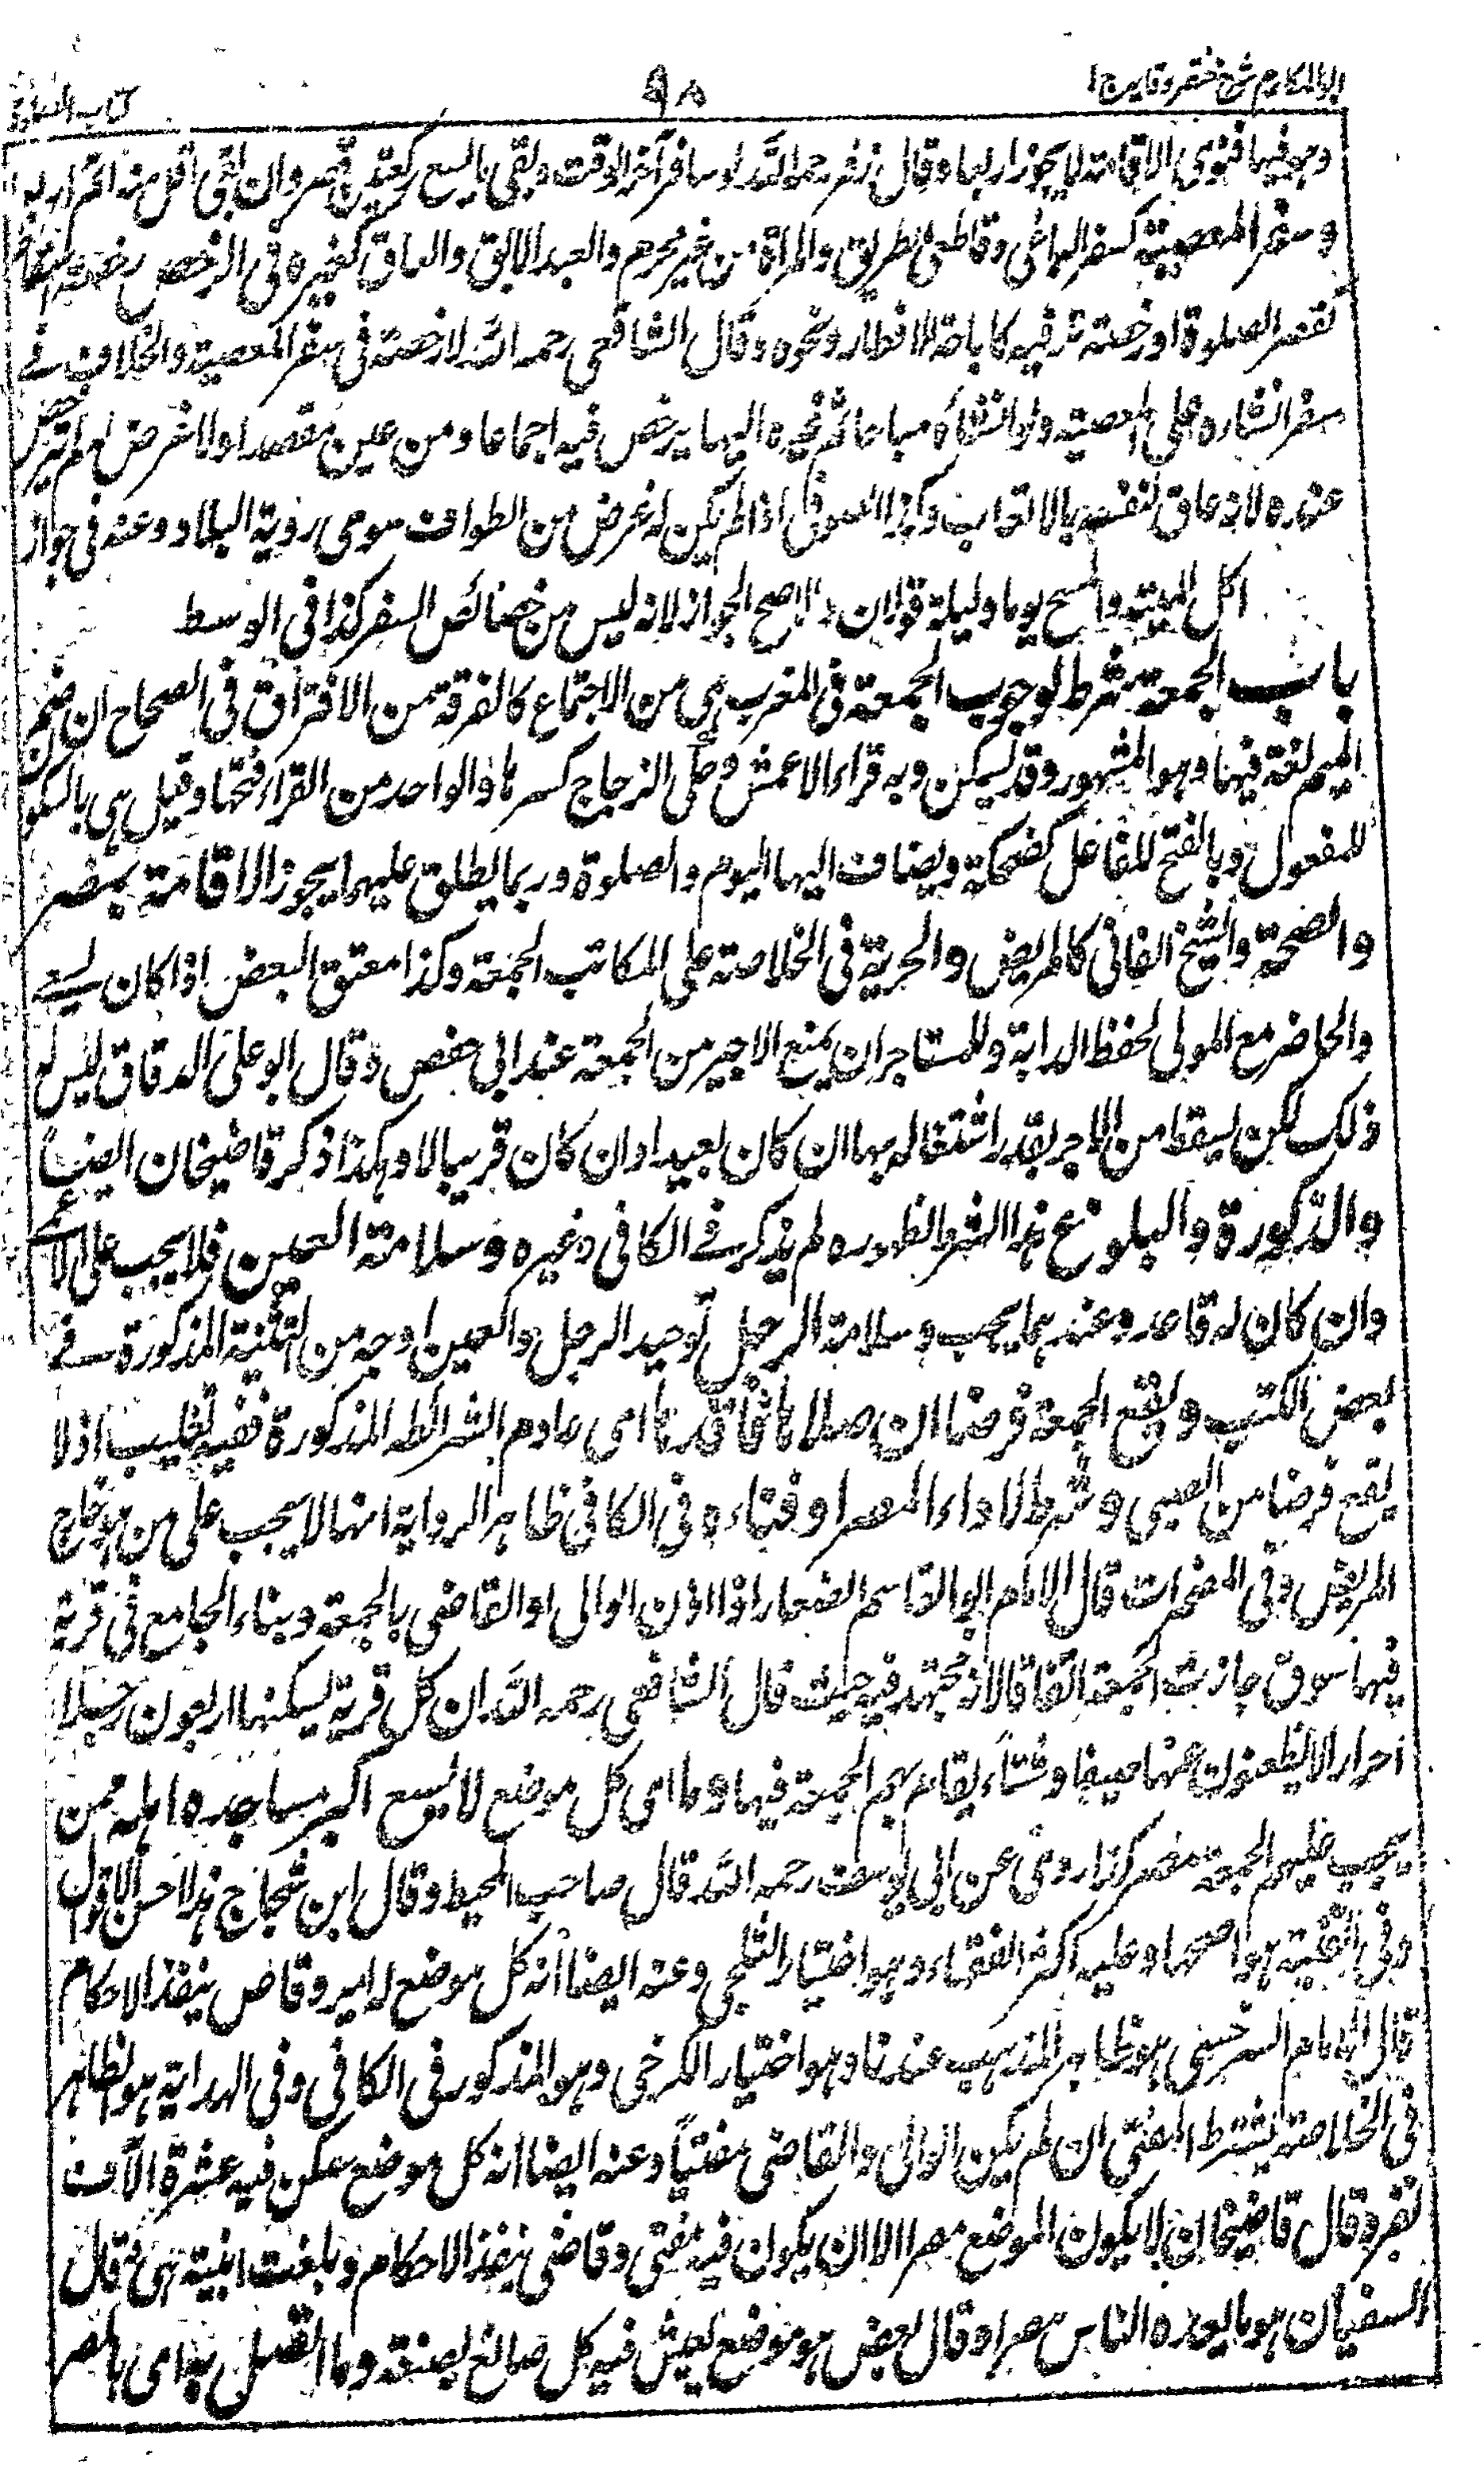 ابو المکارم شرح مختصر وقایہ ج ۱
۹۸
کتاب الصلوة
وہو فیہا فنوی الاقامة لا یجوز اربعا وقال زفر رحمہ اللہ لو سافر آخر الوقت وبقی ما یسع رکعتین قصر وان بقی اقل منہ اتم اربعا
وسفر المعصیة کسفر الباغی وقاطع الطریق والمرأة من غیر محرم والعبد الآبق والعاق کغیرہ فی الرخص رخصة اسقاط
کقصر الصلوة او رخصة ترفیہ کاباحة الافطار ونحوہ وقال الشافعی رحمہ اللہ لا رخصة فی سفر المعصیة والخلاف فے
سفر انشاءہ علی المعصیة ولو انشأہ مباحا ثم غیرہ الیہا یرخص فیہ اجماعا ومن عین مقصدا ولا غرض لہ لم یترخص
عندہ لانہ عاق لنفسہ بالاتعاب وکذا الصوفی اذا لم یکن لہ غرض من الطواف سوی رویة البلاد وعنہ فی جواز
اکل المیتة والمسح یوما ولیلة قولان والاصح الجواز لانہ لیس من خصائص السفر کذا فی الوسط
باب الجمعة شرط لوجوب الجمعة فی المغرب ہی من الاجتماع کالفرقة من الافتراق فی الصحاح ان ضم
المیم لغة فیہا وہو المشہور وقد یسکن وبہ قراء الاعمش وحکی الزجاج کسرہا والواحد من القراء فتحہا وقیل ہی بالسکون
للمفعول وبالفتح للفاعل کضحکة ویضاف الیہا الیوم والصلوة وربما یطلق علیہما بیجوز الاقامة بمصر
والصحة والشیخ الفانی کالمریض والحریة فی الخلاصة علی المکاتب الجمعة وکذا معتق البعض اذا کان یسعے
والحاضر مع المولی لحفظ الدابة وللمستاجر ان یمنع الاجیر من الجمعة عند ابی حفص وقال ابو علی الدقاق لیس لہ
ذلک لکن یسقط من الاجر بقدر اشتغالہ بہا ان کان بعیدا وان کان قریبا لا وہکذا ذکر قاضیخان ایضاً
والذکورة والبلوغ ہذا الشرط لظہورہ لم یذکر فے الکافی وغیرہ وسلامة العین فلا یجب علی الاعمے
وان کان لہ قاعد وعندہما یجب وسلامة الرجل توحید الرجل والعین اوجہ من التثنیة المذکورة فے
بعض الکتب وتقع الجمعة فرضا ان صلاہا فاقدہا ای عادم الشرائط المذکورة ففیہ تغلیب اذ لا
یقع فرضا من الصبی وشرط لاداءہا المصر او فناءہ فی الکافی ظاہر الروایة انہا لا یجب علی من ہو خارج
المریض وفی المضمرات قال الامام ابو القاسم الصفار اذا اذن الوالی او القاضی بالجمعة وبناء الجامع فی قریة
فیہا سوق جازت الجمعة اتفاقا لانہ مجتہد فیہ حیث قال الشافعی رحمہ اللہ ان کل قریة یسکنہا اربعون رجلا
احرارا لا یظعنون عنہا صیفا وشتاءً یقام بہم الجمعة فیہا وما ای کل موضع لا یسع اکبر مساجدہ اہلہ ممن
یجب علیہم الجمعة مصر کذا روی عن ابی یوسف رحمہ اللہ قال صاحب المحیط وقال ابن شجاع ہذا احسن الاقوال
وفی القنیة ہو اصحہا وعلیہ اکثر الفقہاء وہو اختیار الثلجی وعنہ ایضا انہ کل موضع لہ امیر وقاض ینفذ الاحکام
قال الامام السرخسی ہو ظاہر المذہب عندنا وہو اختیار الکرخی وہو المذکور فی الکافی وفی الہدایة ہو الظاہر
فی الخلاصة یشترط المفتی ان لم یکن الوالی والقاضی مفتیاً وعنہ ایضا انہ کل موضع سکن فیہ عشرة آلاف
نفر وقال قاضیخان لا یکون الموضع مصرا الا ان یکون فیہ مفتی وقاضی ینفذ الاحکام وبلغت ابنیتہ ابنیة منی وقال
السفیان ہو ما یعدہ الناس مصرا وقال بعض ہو موضع یعیش فیہ کل صانع بصنعتہ وما اتصل بہ ای بالمصر